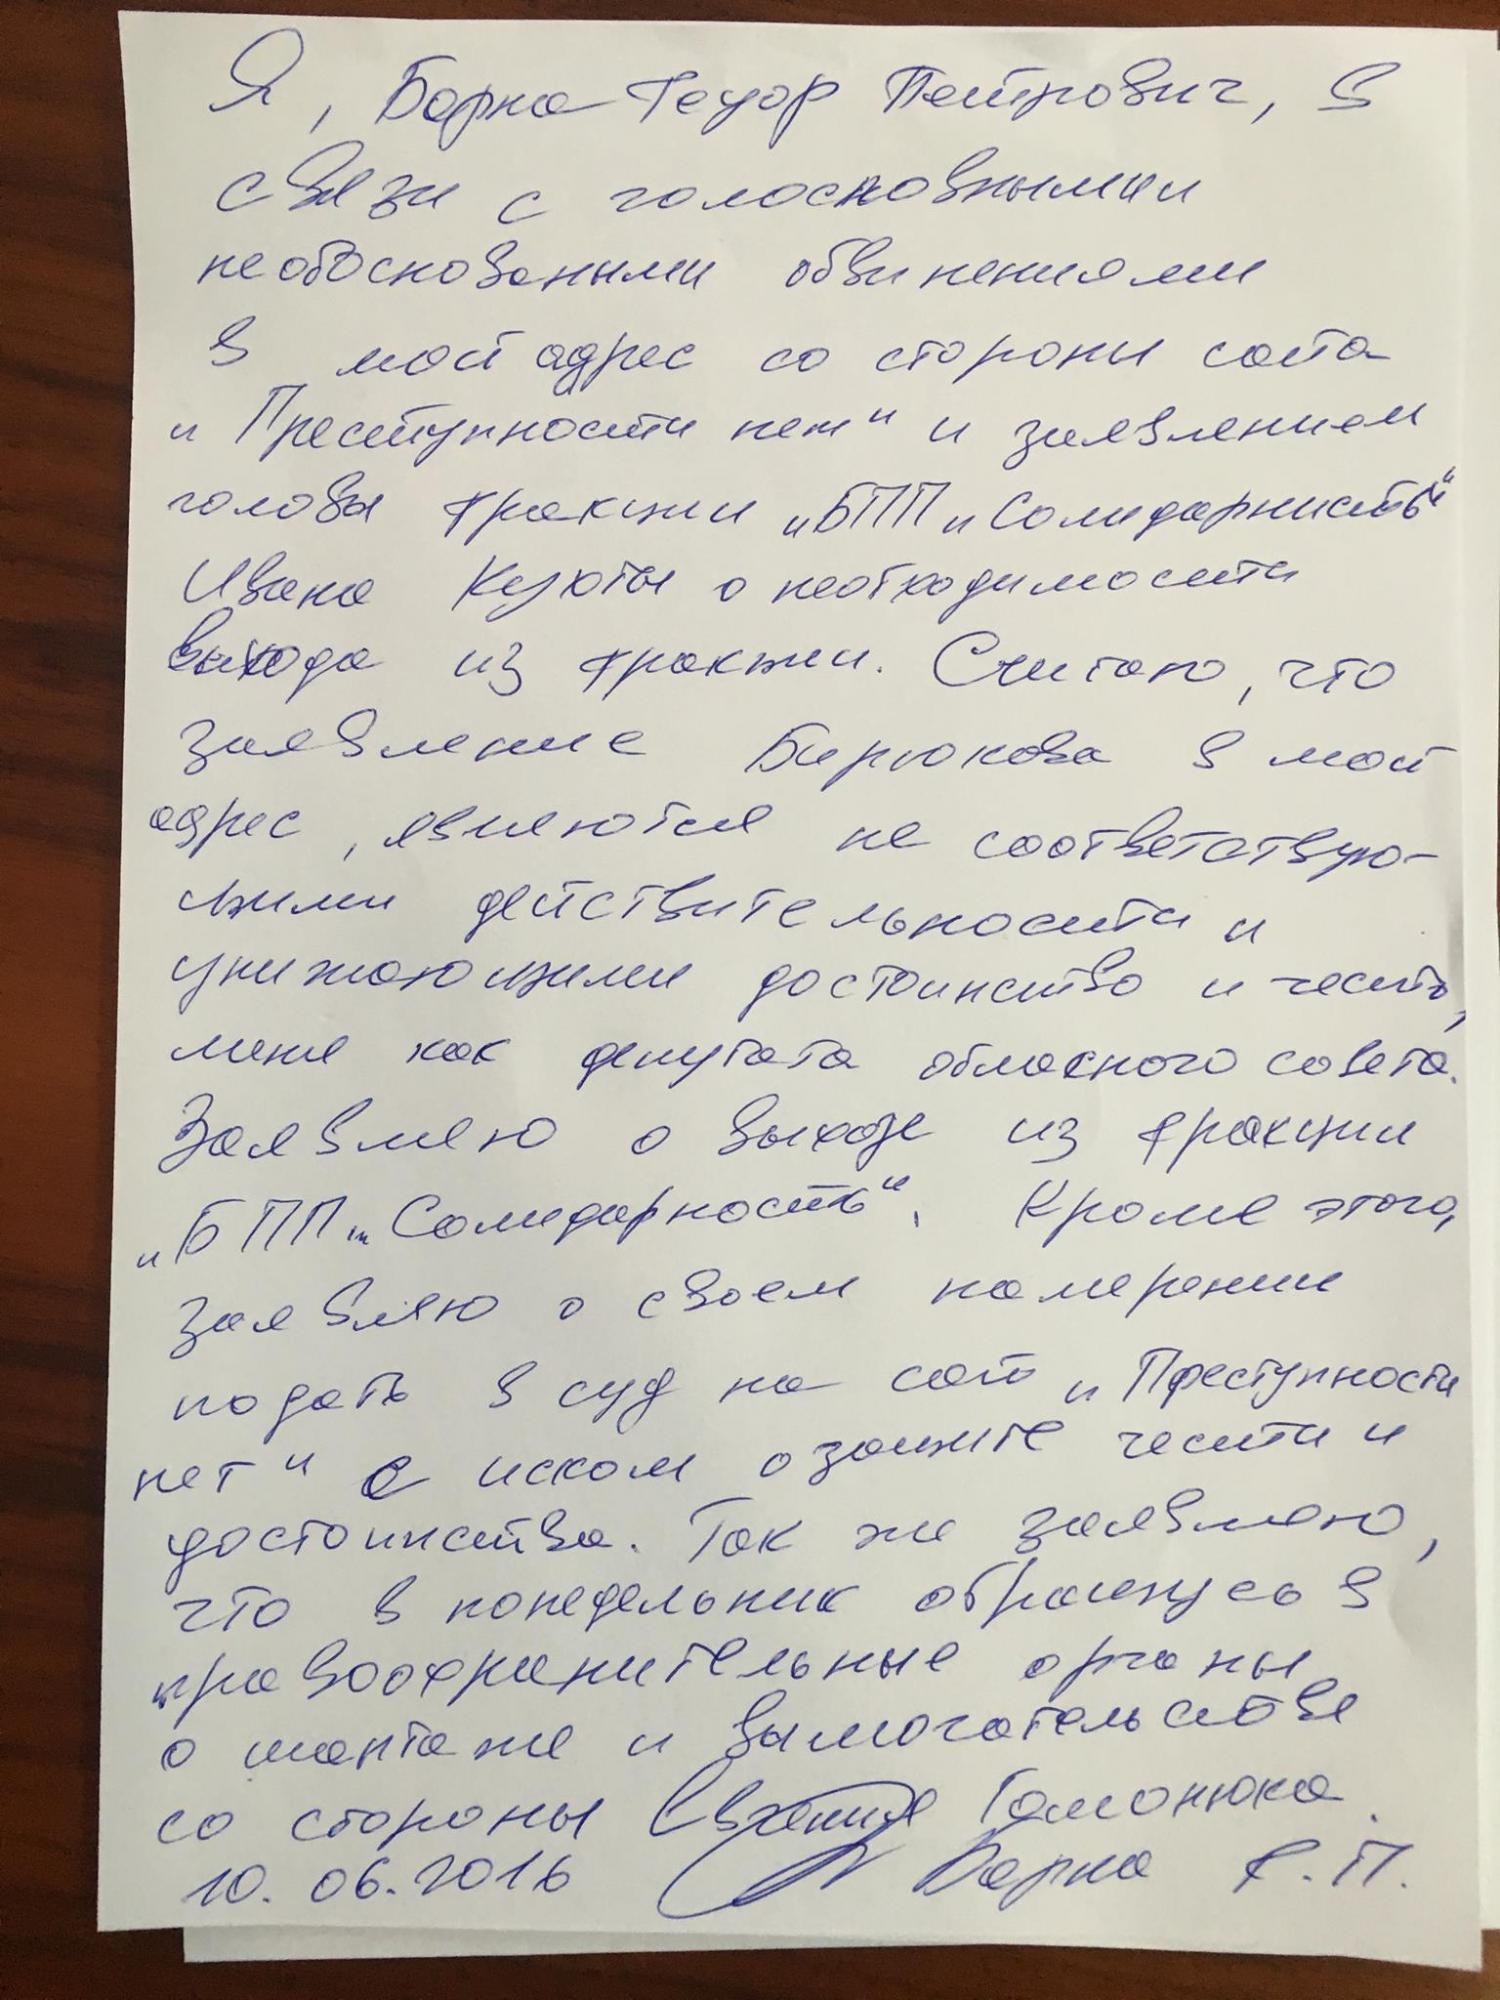 Я, Барна Федор Петрович, в
связи с голословными
необосноваными обвинениями
в мой адрес со стороны сайта
"Преступности нет" и заявлением
головы фракции "БПП "Солидарнисть"
Ивана Кухты о необходимости
выхода из фракции. Считаю, что
заявление Бирюкова в мой
адрес, являются не соответствую-
щими действительности и
унижающими достоинство и честь,
меня как депутата областного совета.
Заявляю о выходе из фракции
"БПП "Солидарность". Кроме этого,
заявляю о своем намерении
подать в суд на сайт "Преступности
нет" с иском о защите чести и
достоинства. Так же заявляю,
что в понедельник обращусь в
правоохранительные органы
о шантаже и вымогательстве
со стороны Евгения Гомонюка.
10.06.2016 Барна Ф.П.